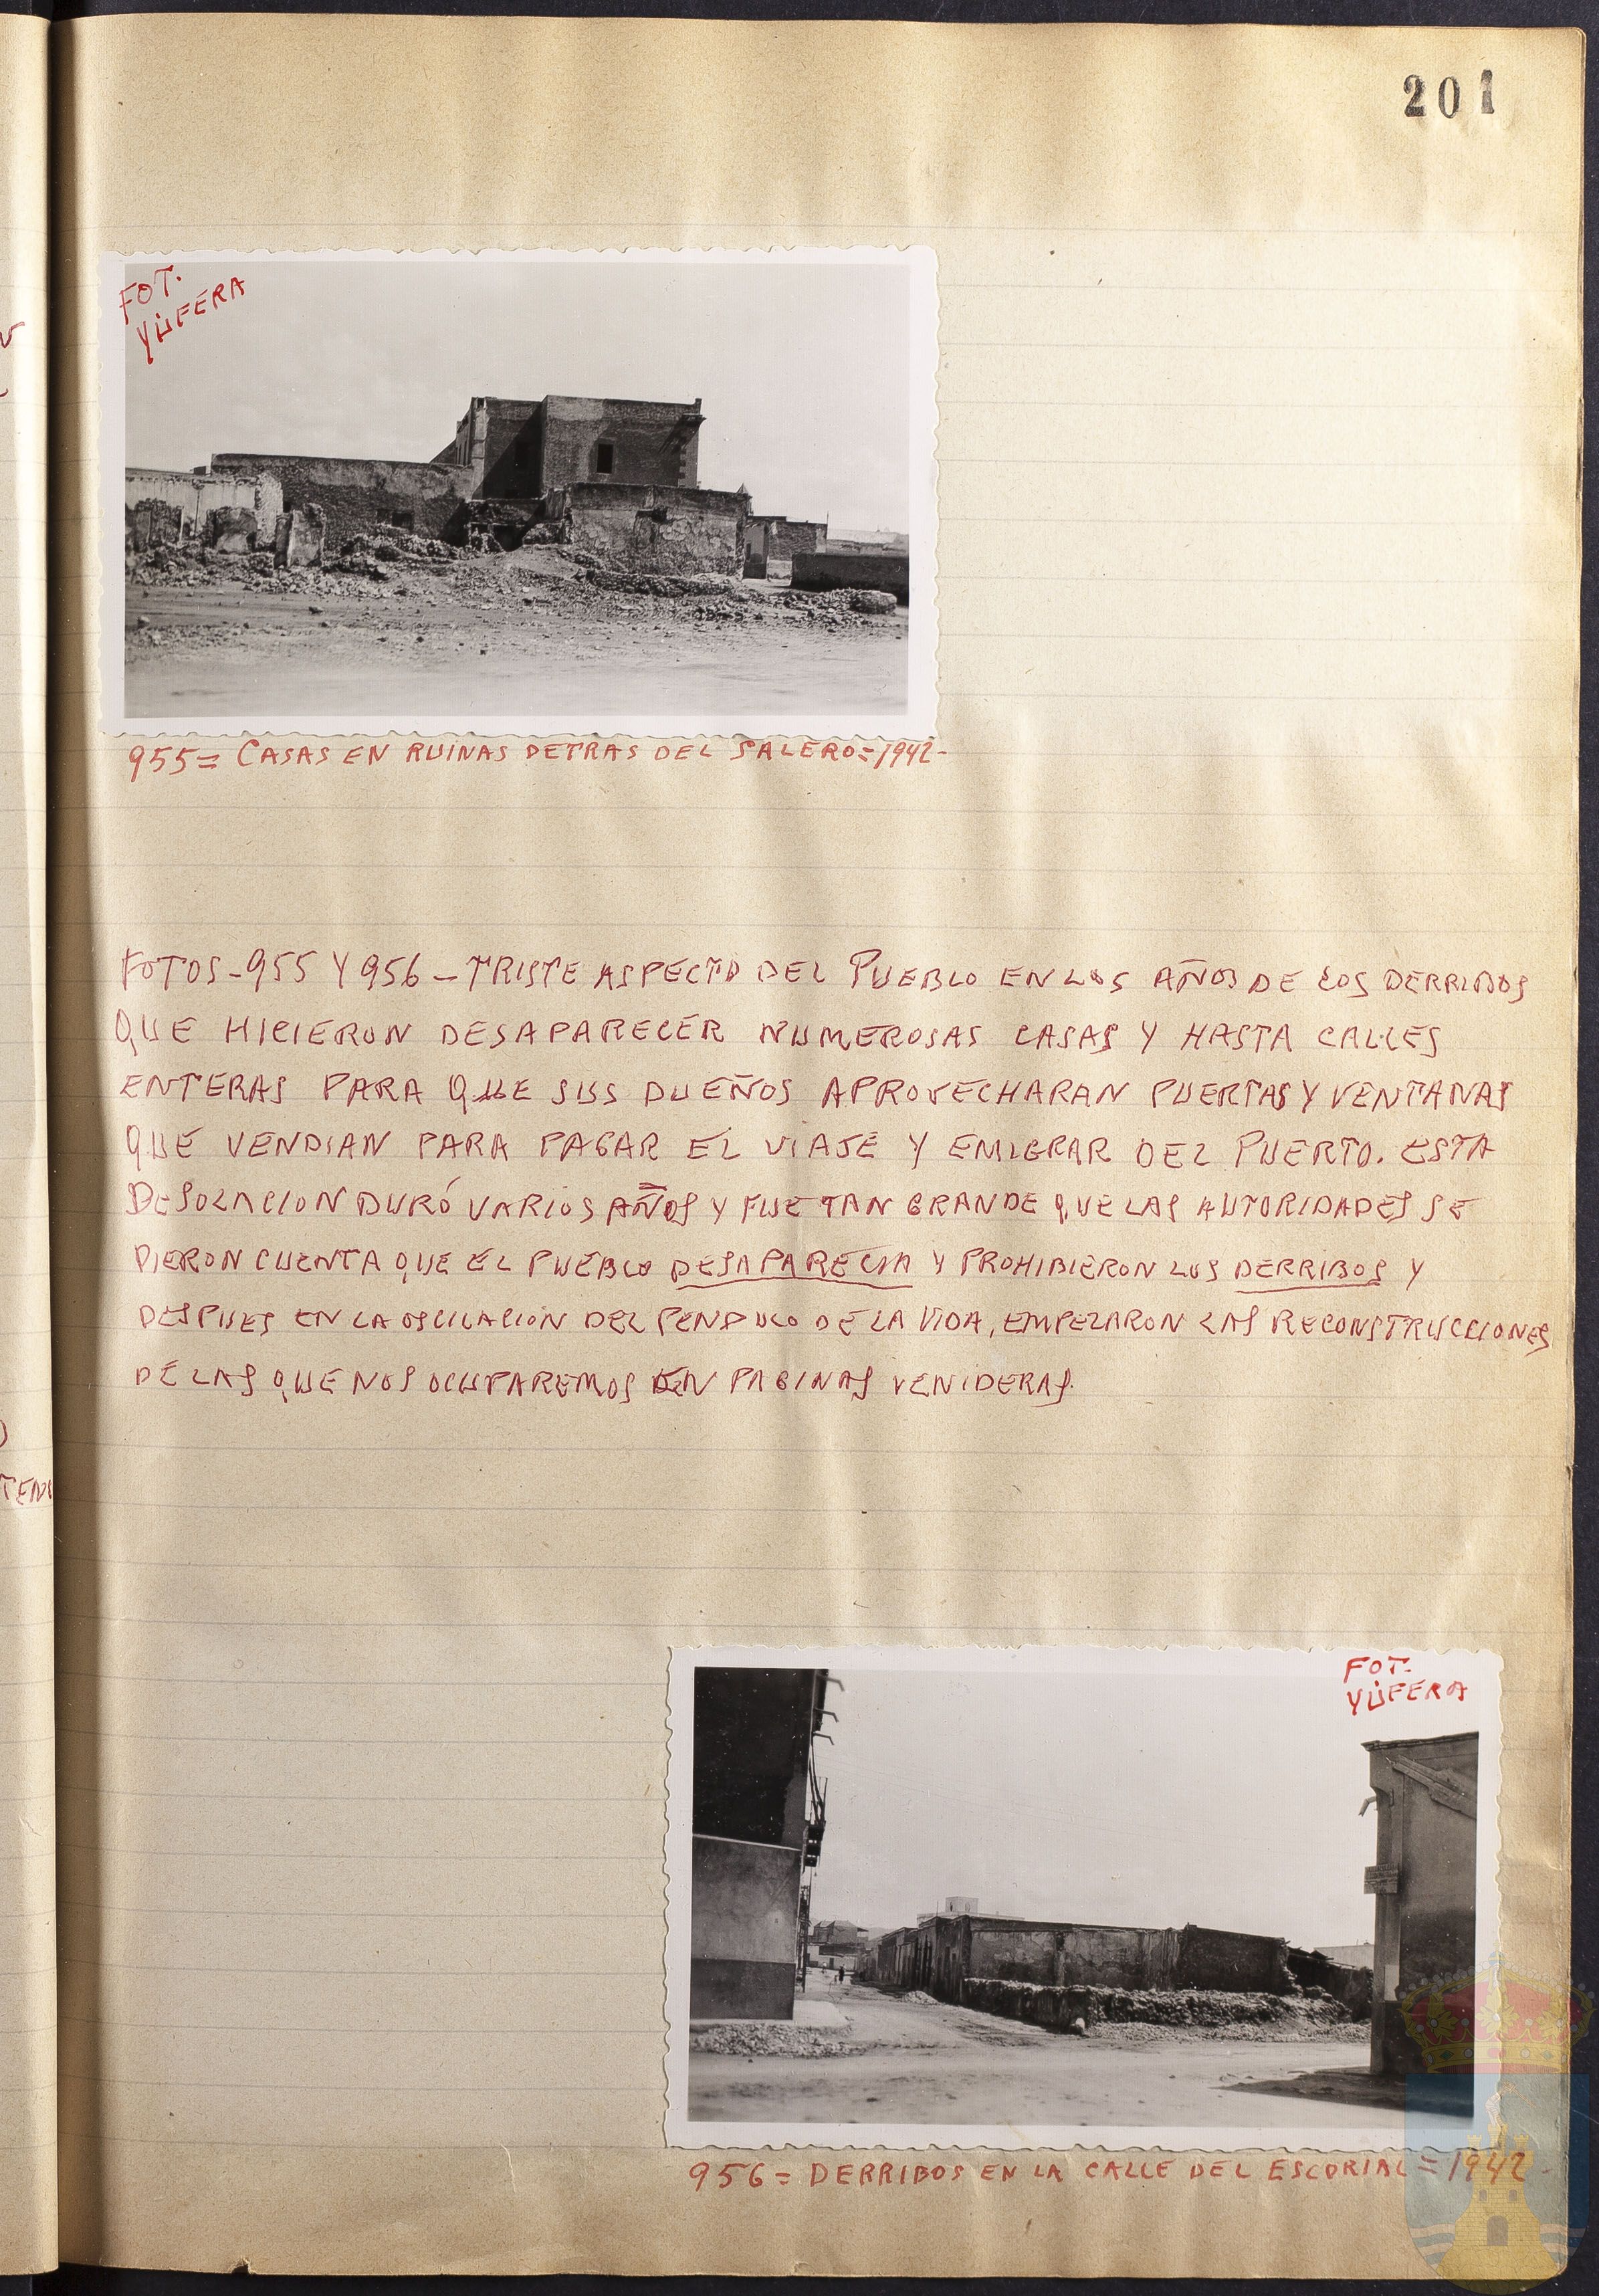 201
FOT.
YÚFERA
955= CASAS EN RUINAS DETRAS DEL SALERO=1942-
FOTOS-955 Y 956-TRISTE ASPECTO DEL PUEBLO EN LOS AÑOS DE LOS DERRIBOS
QUE HICIERON DESAPARECER NUMEROSAS CASAS Y HASTA CALLES
ENTERAS PARA QUE SUS DUEÑOS APROVECHARAN PUERTAS Y VENTANAS
QUE VENDIAN PARA PAGAR EL VIAJE Y EMIGRAR DEL PUERTO. ESTA
DESOLACION DURÓ VARIOS AÑOS Y FUE TAN GRANDE QUE LAS AUTORIDADES SE
DIERON CUENTA QUE EL PUEBLO DESAPARECIA Y PROHIBIERON LOS DERRIBOS Y
DESPUES EN LA OSCILACION DEL PENDULO DE LA VIDA, EMPEZARON LAS RECONSTRUCCIONES
DE LAS QUE NOS OCUPAREMOS EN PAGINAS VENIDERAS.
FOT.
YÚFERA
956= DERRIBOS EN LA CALLE DEL ESCORIAL=1942-